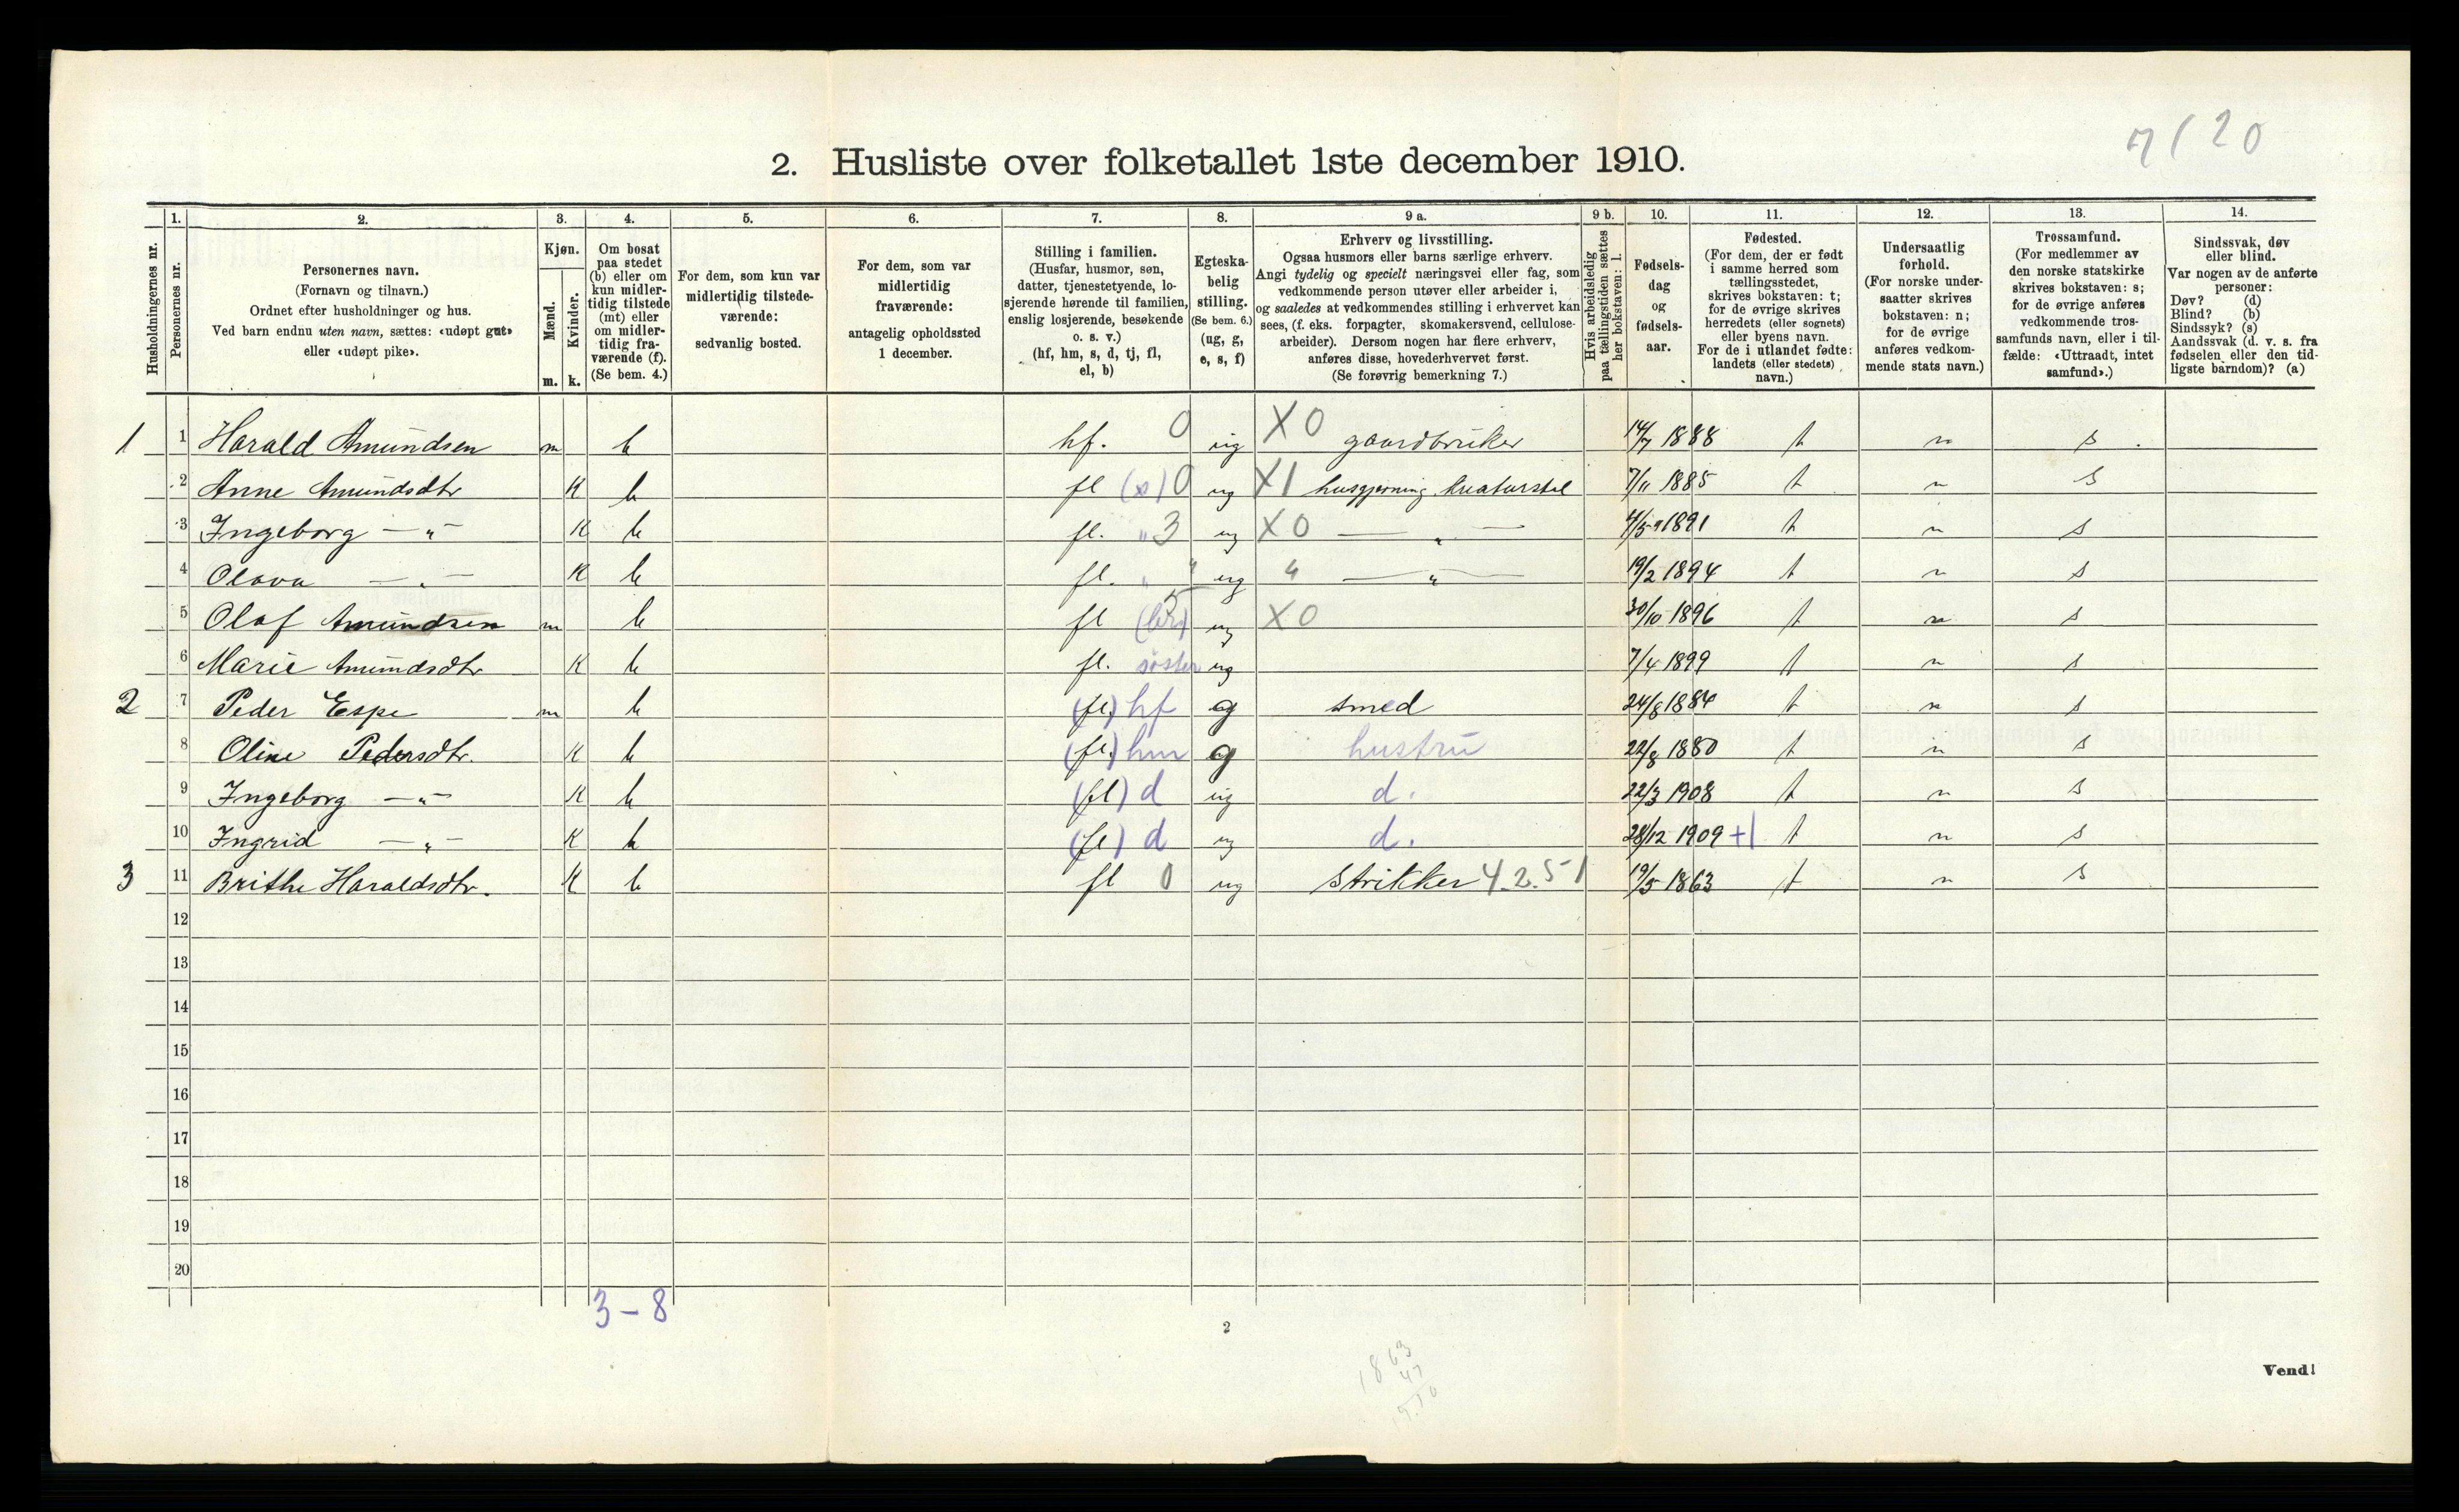 7/20
2. Husliste over folketallet 1ste december 1910.
Husholdningernes nr.
1.
Personernes nr.
2.
Personernes navn.
(Fornavn og tilnavn.)
Ordnet efter husholdninger og hus.
Ved barn endnu uten navn, sættes: «udøpt gut»
eller «udøpt pike».
3.
Kjøn.
Mænd.
Kvinder.
m. k.
4.
Om bosat
paa stedet
(b) eller om
kun midler-
tidig tilstede
(mt) eller
om midler-
tidig fra-
værende (f).
(Se bem. 4.)
5.
For dem, som kun var
midlertidig tilstede-
værende:
sedvanlig bosted.
6.
For dem, som var
midlertidig
fraværende:
antagelig opholdssted
1 december.
7.
Stilling i familien.
(Husfar, husmor, søn,
datter, tjenestetyende, lo-
sjerende hørende til familien,
enslig losjerende, besøkende
o. s. v.)
(hf, hm, s, d, tj, fl,
el, b)
8.
Egteska-
belig
stilling.
(Se bem. 6.)
(ug, g,
e, s, f)
9 a.
Erhverv og livsstilling.
Ogsaa husmors eller barns særlige erhverv.
Angi tydelig og specielt næringsvei eller fag, som
vedkommende person utøver eller arbeider i,
og saaledes at vedkommendes stilling i erhvervet kan
sees, (f. eks. forpagter, skomakersvend, cellulose-
arbeider). Dersom nogen har flere erhverv,
anføres disse, hovederhvervet først.
(Se forøvrig bemerkning 7.)
9 b.
Hvis arbeidsledig
paa tællingstiden sættes
her bokstaven: l.
10.
Fødsels-
dag
og
fødsels-
aar.
11.
Fødested.
(For dem, der er født
i samme herred som
tællingsstedet,
skrives bokstaven: t;
for de øvrige skrives
herredets (eller sognets)
eller byens navn.
For de i utlandet fødte:
landets (eller stedets)
navn.)
12.
Undersaatlig
forhold.
(For norske under-
saatter skrives
bokstaven: n;
for de øvrige
anføres vedkom-
mende stats navn.)
13.
Trossamfund.
(For medlemmer av
den norske statskirke
skrives bokstaven: s;
for de øvrige anføres
vedkommende tros-
samfunds navn, eller i til-
fælde: «Uttraadt, intet
samfund».)
14.
Sindssvak, døv
eller blind.
Var nogen av de anførte
personer:
Døv? (d)
Blind? (b)
Sindssyk? (s)
Aandssvak (d. v. s. fra
fødselen eller den tid-
ligste barndom)? (a)
1 1 Harald Amundsen m b hf. 0 ug X0 gaardbruker 14/7 1888 t n s
2 Anne Amundsdtr K b fl (s) 0 ug X1 husgjerning kreaturstel 7/11 1885 t n s
3 Ingeborg —"— K b fl. " 3 ug X0 —"— 4/5 1891 t n s
4 Olava —"— K b fl. " " ug " —"— 19/2 1894 t n s
5 Olaf Amundsen m b fl (br) 5 ug X0 30/10 1896 t n s
6 Marie Amundsdtr K b fl. søster ug 7/4 1899 t n s
2 7 Peder Espe m b (fl.) hf g smed 24/8 1884 t n s
8 Oline Pedersdtr. K b (fl.) hm g hustru 22/8 1880 t n s
9 Ingeborg —"— K b (fl) d ug d. 22/3 1908 t n s
10 Ingrid —"— K b (fl) d ug d. 28/12 1909 +1 t n s
3 11 Brithe Haraldsdtr. K b fl 0 ug Strikker 4.2.51 19/5 1863 t n s
12
13
14
15
16
17
18
19
20
3 – 8
2
1863
47
1910
Vend!